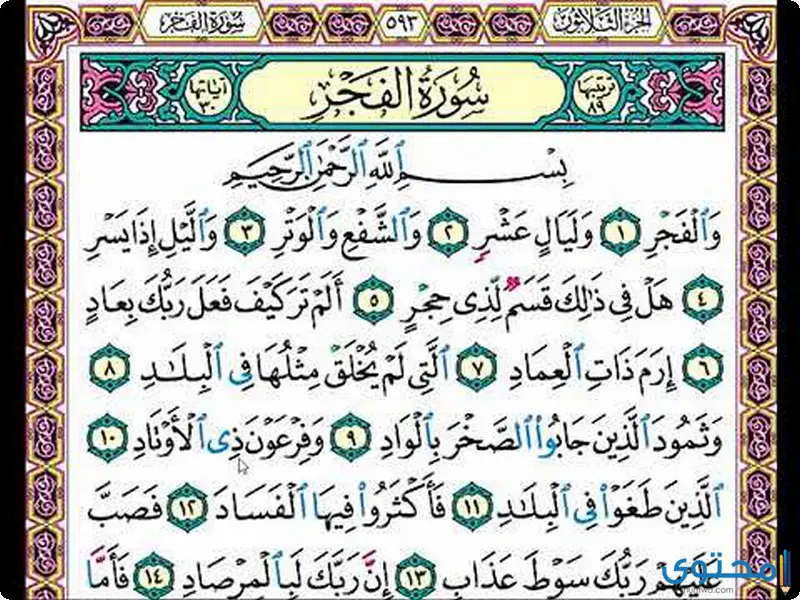 الجزء الثلاثون ٥٩٣ سورة الفجر
ترتيبها ٨٩ سُورَةُ الفَجْرِ آياتها ٣٠
بِسْمِ ٱللَّهِ ٱلرَّحْمَٰنِ ٱلرَّحِيمِ
وَٱلْفَجْرِ ١ وَلَيَالٍ عَشْرٍ ٢ وَٱلشَّفْعِ وَٱلْوَتْرِ ٣ وَٱلَّيْلِ إِذَا يَسْرِ
٤ هَلْ فِى ذَٰلِكَ قَسَمٌ لِّذِى حِجْرٍ ٥ أَلَمْ تَرَ كَيْفَ فَعَلَ رَبُّكَ بِعَادٍ
٦ إِرَمَ ذَاتِ ٱلْعِمَادِ ٧ ٱلَّتِى لَمْ يُخْلَقْ مِثْلُهَا فِى ٱلْبِلَٰدِ ٨
وَثَمُودَ ٱلَّذِينَ جَابُوا۟ ٱلصَّخْرَ بِٱلْوَادِ ٩ وَفِرْعَوْنَ ذِى ٱلْأَوْتَادِ ١٠
ٱلَّذِينَ طَغَوْا۟ فِى ٱلْبِلَٰدِ ١١ فَأَكْثَرُوا۟ فِيهَا ٱلْفَسَادَ ١٢ فَصَبَّ
عَلَيْهِمْ رَبُّكَ سَوْطَ عَذَابٍ ١٣ إِنَّ رَبَّكَ لَبِٱلْمِرْصَادِ ١٤ فَأَمَّا
محتوى